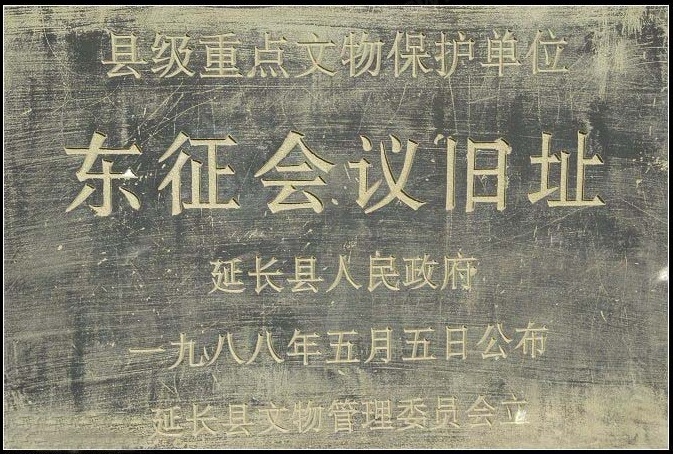 县级重点文物保护单位
东征会议旧址
延长县人民政府
一九八八年五月五日公布
延长县文物管理委员会立